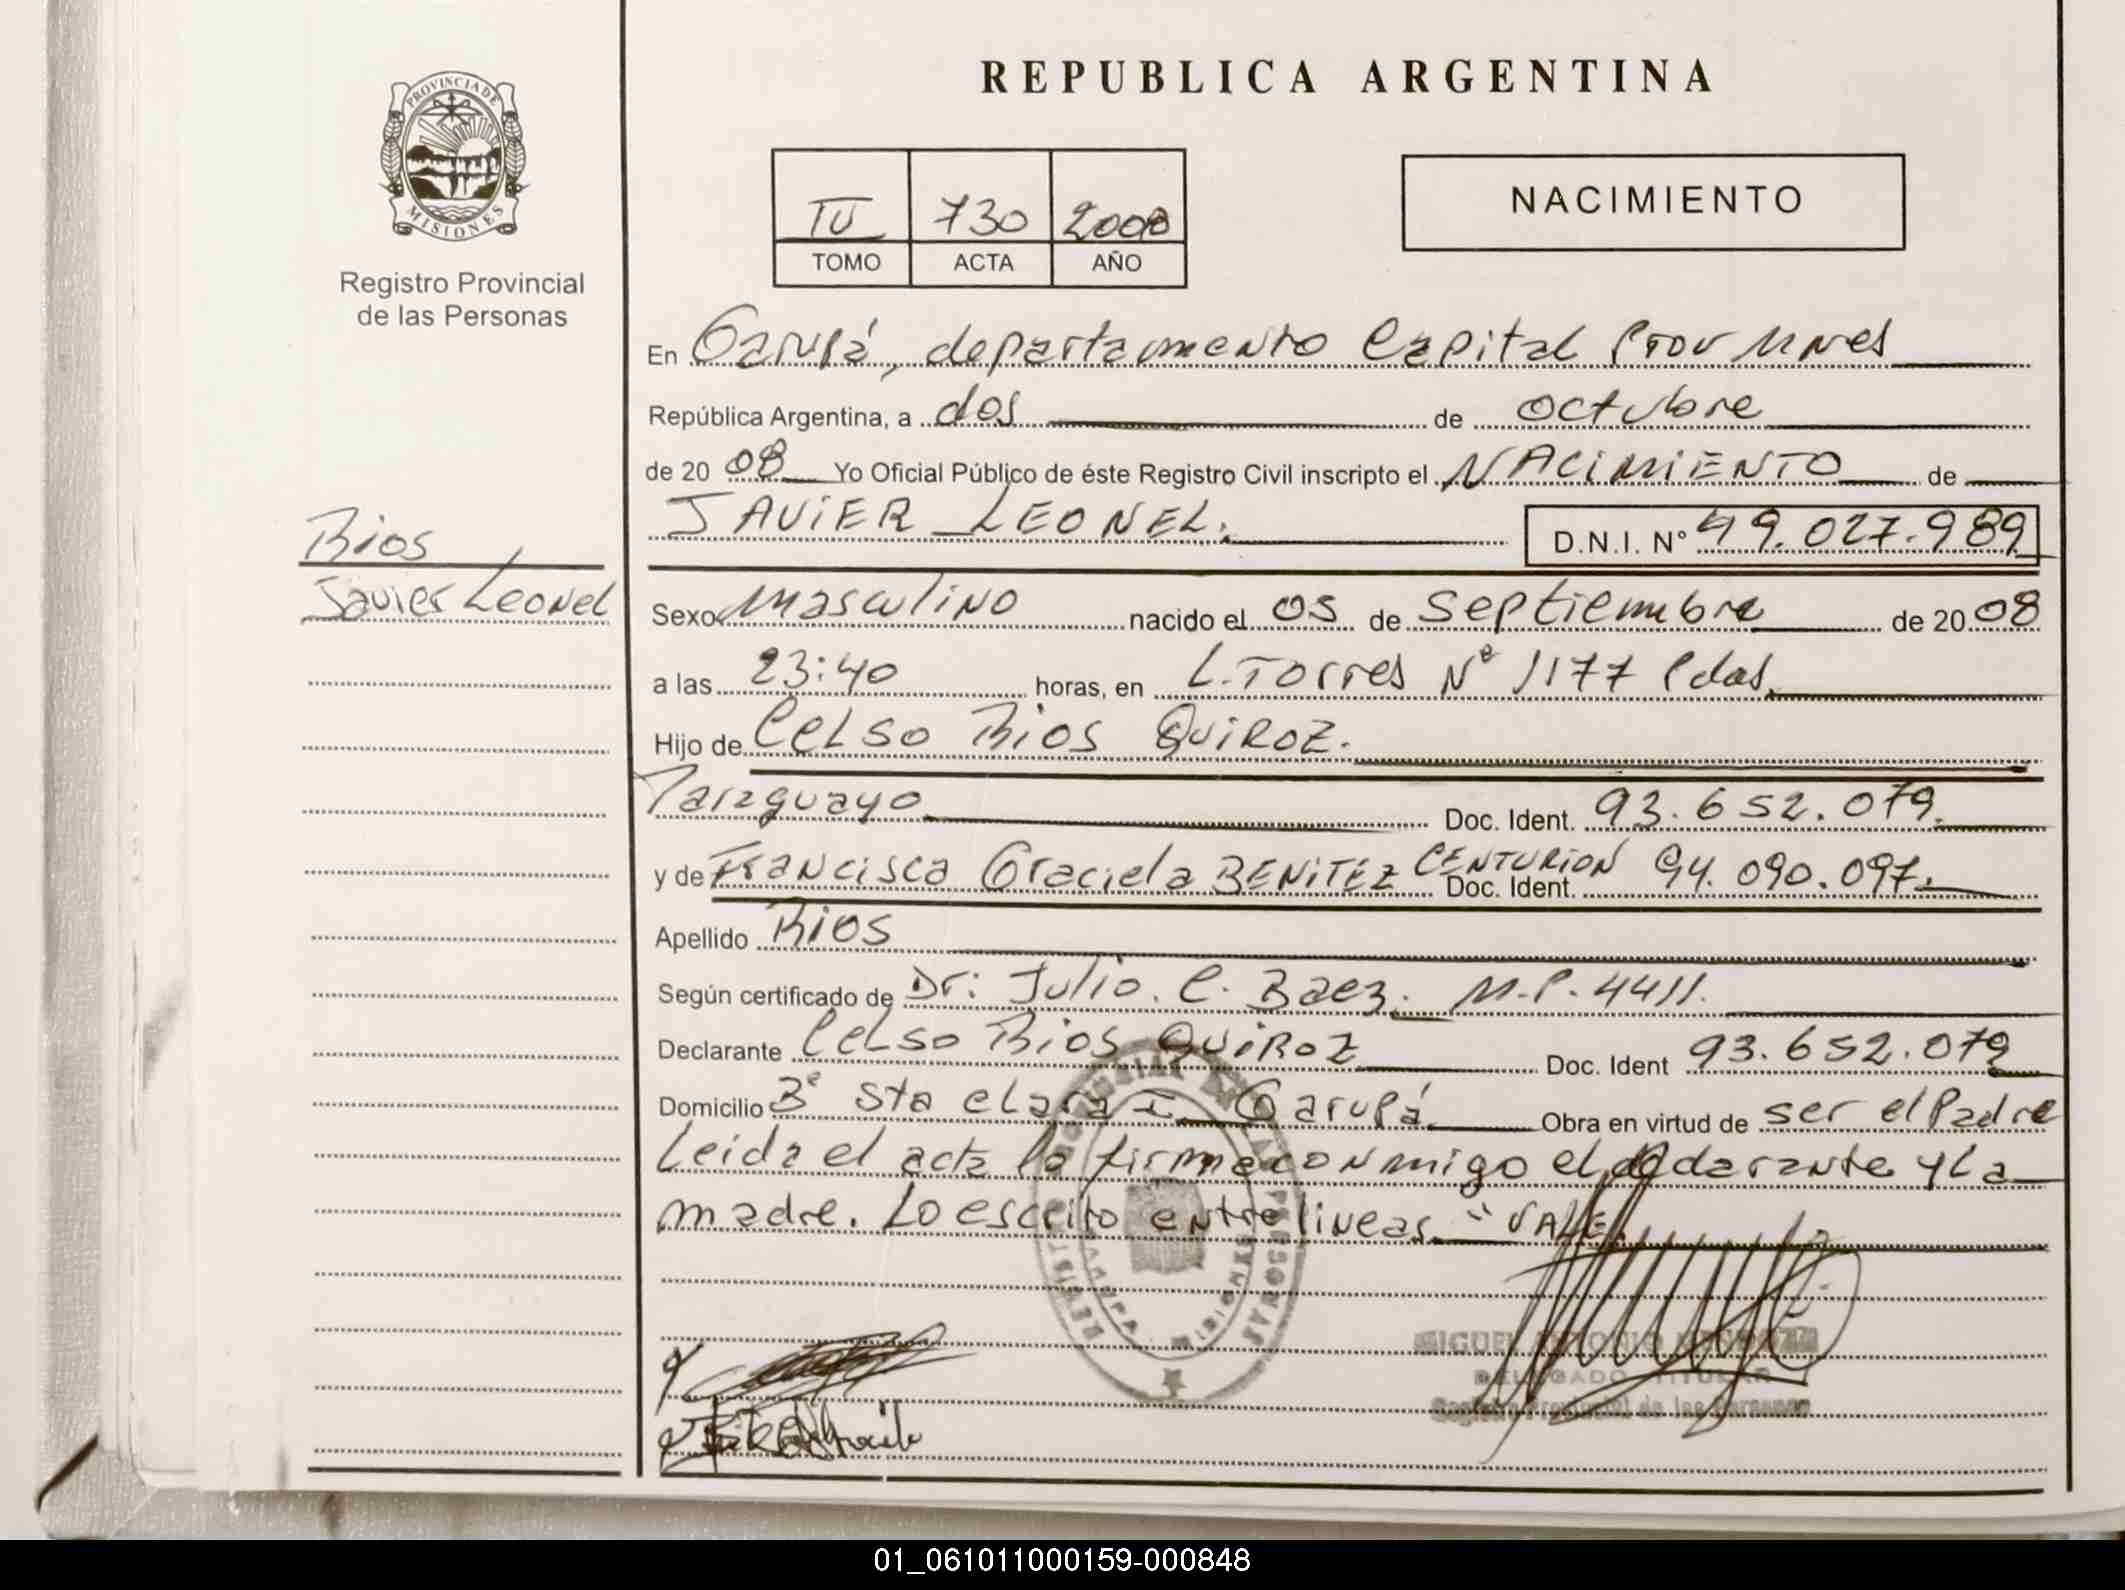 REPUBLICA ARGENTINA
PROVINCIA DE
MISIONES
Registro Provincial
de las Personas
IV 730 2008
TOMO ACTA AÑO
NACIMIENTO
En Garupá, departamento Capital Prov Mnes
República Argentina, a dos de octubre
de 20 08 Yo Oficial Público de éste Registro Civil inscripto el NACIMIENTO de
JAVIER LEONEL. D.N.I. N° 49.027.989
Rios
Javier Leonel
Sexo Masculino nacido el 05 de Septiembre de 20 08
a las 23:40 horas, en L. Torres N° 1177 Pdas,
Hijo de Celso Rios QUIROZ.
Paraguayo Doc. Ident. 93.652.079.
y de Francisca Graciela BENITEZ CENTURION Doc. Ident. 94.090.097.
Apellido Rios
Según certificado de Dr: Julio. C. Baez. M.P. 4411.
Declarante Celso Rios QUIROZ Doc. Ident 93.652.079
Domicilio B° Sta Clara I Garupá Obra en virtud de ser el Padre
Leida el acta la firma conmigo el declarante y La
madre. Lo escrito entre lineas "VALE
REGISTRO PROVINCIAL DE LAS PERSONAS
GARUPA MISIONES
MIGUEL ANTONIO
DELEGADO TITULAR
Registro Provincial de las Personas
01_061011000159-000848